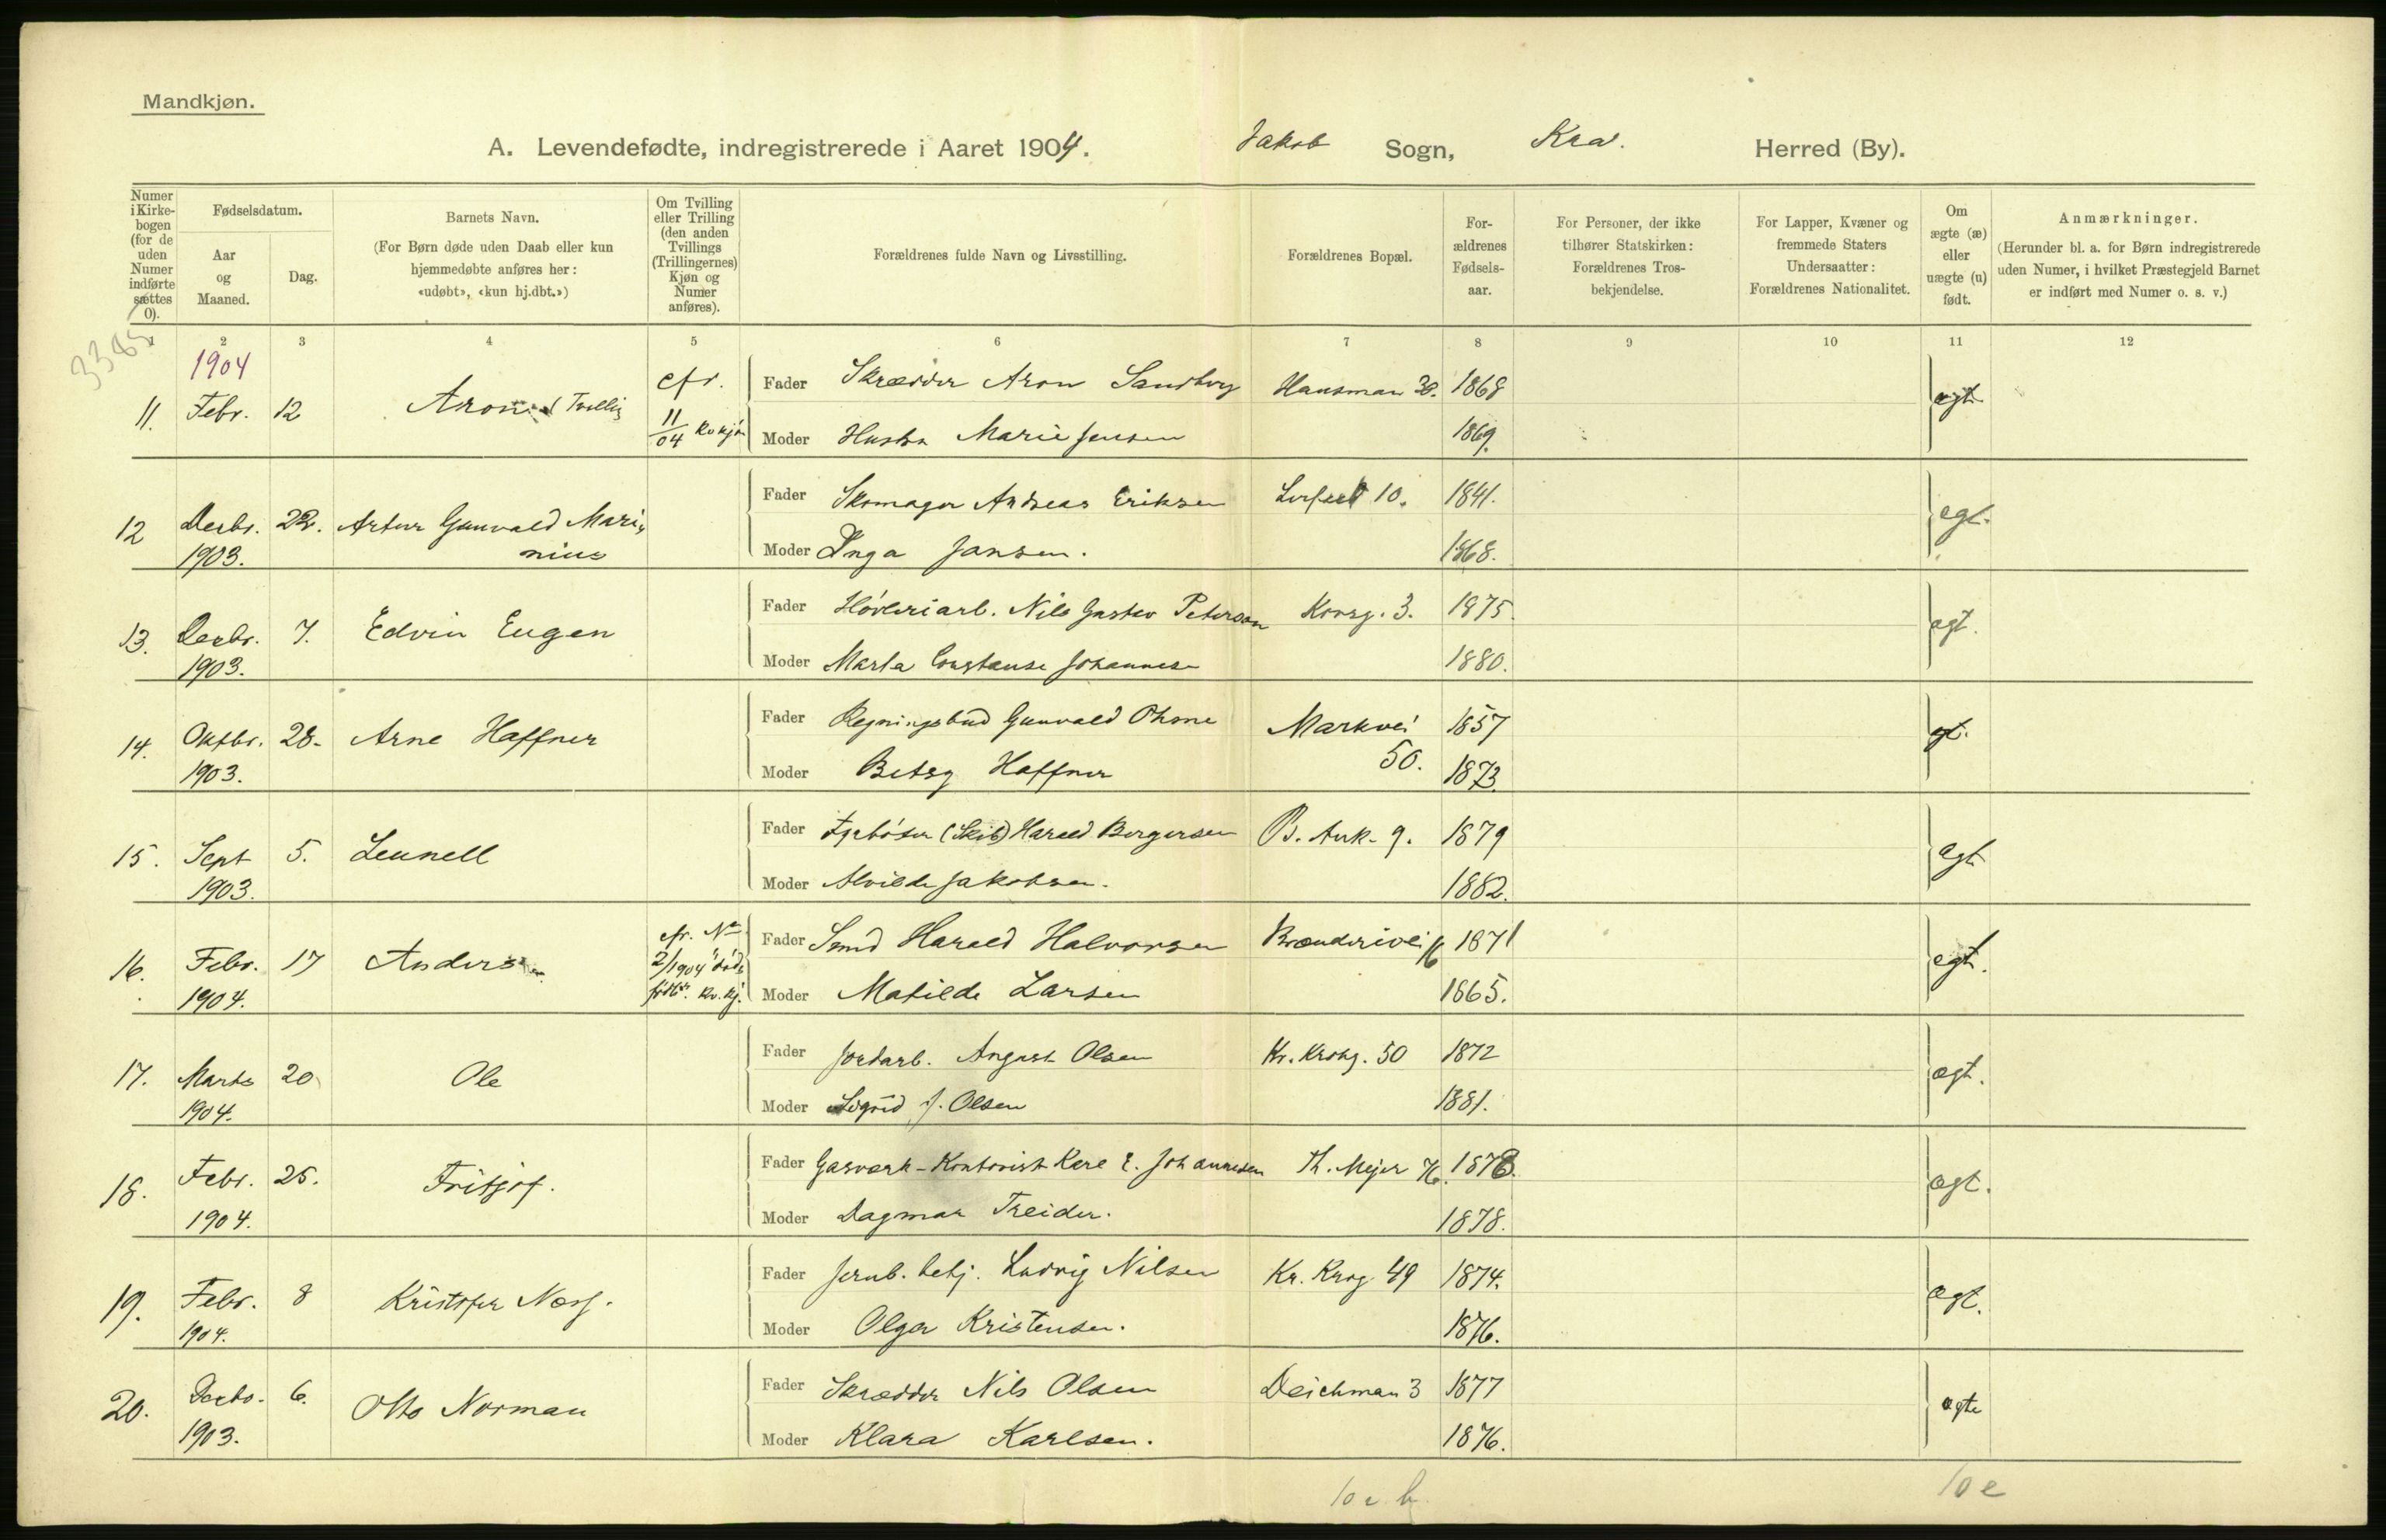 Mandkjøn.
A. Levendefødte, indregistrerede i Aaret 1904. Jakob Sogn, Kra. Herred (By).
Numer i Kirkebogen (for de uden Numer indførte sættes 0).
Fødselsdatum.
Aar og Maaned.
Dag.
Barnets Navn.
(For Børn døde uden Daab eller kun hjemmedøbte anføres her: «udøbt», «kun hj.dbt.»)
Om Tvilling eller Trilling (den anden Tvillings (Trillingernes) Kjøn og Numer anføres).
Forældrenes fulde Navn og Livsstilling.
Forældrenes Bopæl.
Forældrenes Fødselsaar.
For Personer, der ikke tilhører Statskirken: Forældrenes Trosbekjendelse.
For Lapper, Kvæner og fremmede Staters Undersaatter: Forældrenes Nationalitet.
Om ægte (æ) eller uægte (u) født.
Anmærkninger.
(Herunder bl. a. for Børn indregistrerede uden Numer, i hvilket Præstegjeld Barnet er indført med Numer o. s. v.)
1 2 3 4 5 6 7 8 9 10 11 12
1904
11. Febr. 12 Aron cfr. 11/04 Kvkjøn Fader Skrædder Aron Sandberg Hausman 30. 1868 ægt.
Moder Hustru Marie Jensen 1869.
12 Decbr. 1903. 22. Artur Gunvald Marinius Fader Skomager Andreas Eriksen 10. 1841. ægt.
Moder Inga Jansen. 1868.
13. Decbr. 1903. 7. Edvin Eugen Fader Høvleriarb. Nils Gustav Peterson Korsg. 3. 1875. ægt.
Moder Marta Constanse Johannesen 1880.
14. Oktbr. 1903. 28. Arne Haffner Fader Regningsbud Gunvald Ohme Markvei 50. 1857 ægt.
Moder Betsy Haffner 1873.
15. Sept 1903. 5. Leunell Fader Fyrbøder (Skib) Harald Borgersen B. Ank. 9. 1879 ægt
Moder Alvilde Jakobsen. 1882.
16. Febr. 1904. 17 Anders cfr. No 2/1904 dødfødte. Kv.kj. Fader Smed Harald Halvorsen Brænderivei 16 1871 ægt.
Moder Matilde Larsen 1865.
17. Marts 1904. 20 Ole Fader Jordarb. August Olsen Kr. Krohg. 50 1872 ægt.
Moder Sigrid J. Olsen 1881.
18. Febr. 1904. 25. Fritjof. Fader Gasværk-Kontorist Kare E. Johannesen Th. Mejer 76. 1878. ægt.
Moder Dagmar Treider. 1878.
19. Febr. 1904. 8 Kristofer Næss. Fader Jernb. betj. Ludvig Nilsen Kr. Krog 49 1874. ægt.
Moder Olga Kristensen. 1876.
20. Decbr. 1903. 6. Otto Norman Fader Skrædder Nils Olsen Deichman 3 1877 ægte
Moder Klara Karlsen. 1876.
10 e